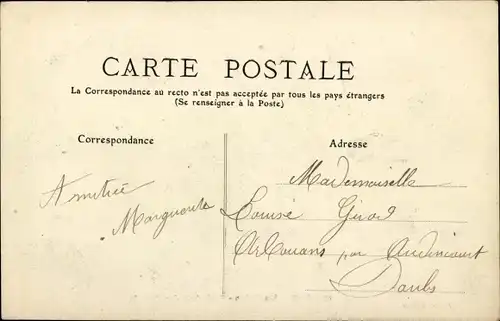 CARTE POSTALE
La Correspondance au recto n'est pas acceptée par tous les pays étrangers
(Se renseigner à la Poste)
Correspondance
Adresse
Amitié
Marguerite
Mademoiselle
Louise Girod
Arbouans par Audincourt
Doubs